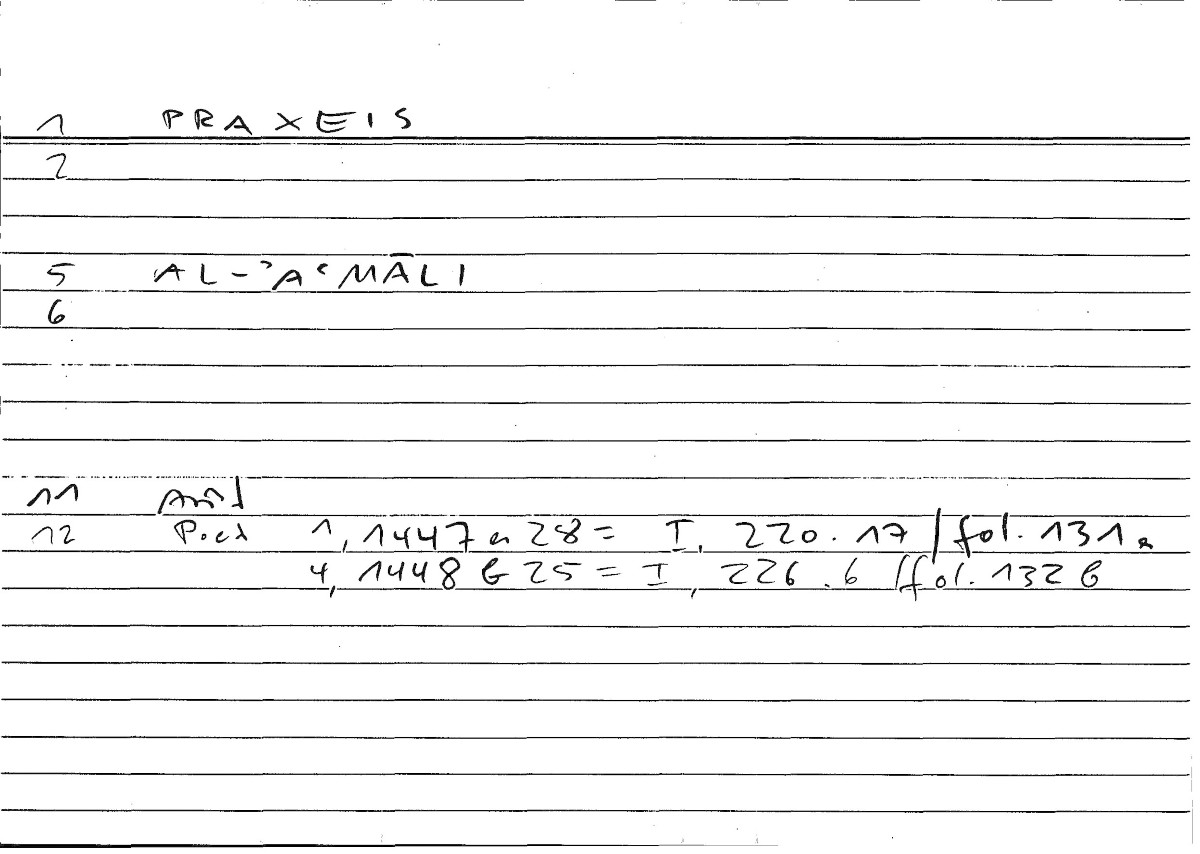 1 PRAXEIS
2
5 AL-ʾAʿMĀLI
6
11 Arist
12 Poet 1, 1447 a 28 = I, 220.17 / fol. 131 a
4, 1448 b 25 = I, 226.6 / fol. 132 b